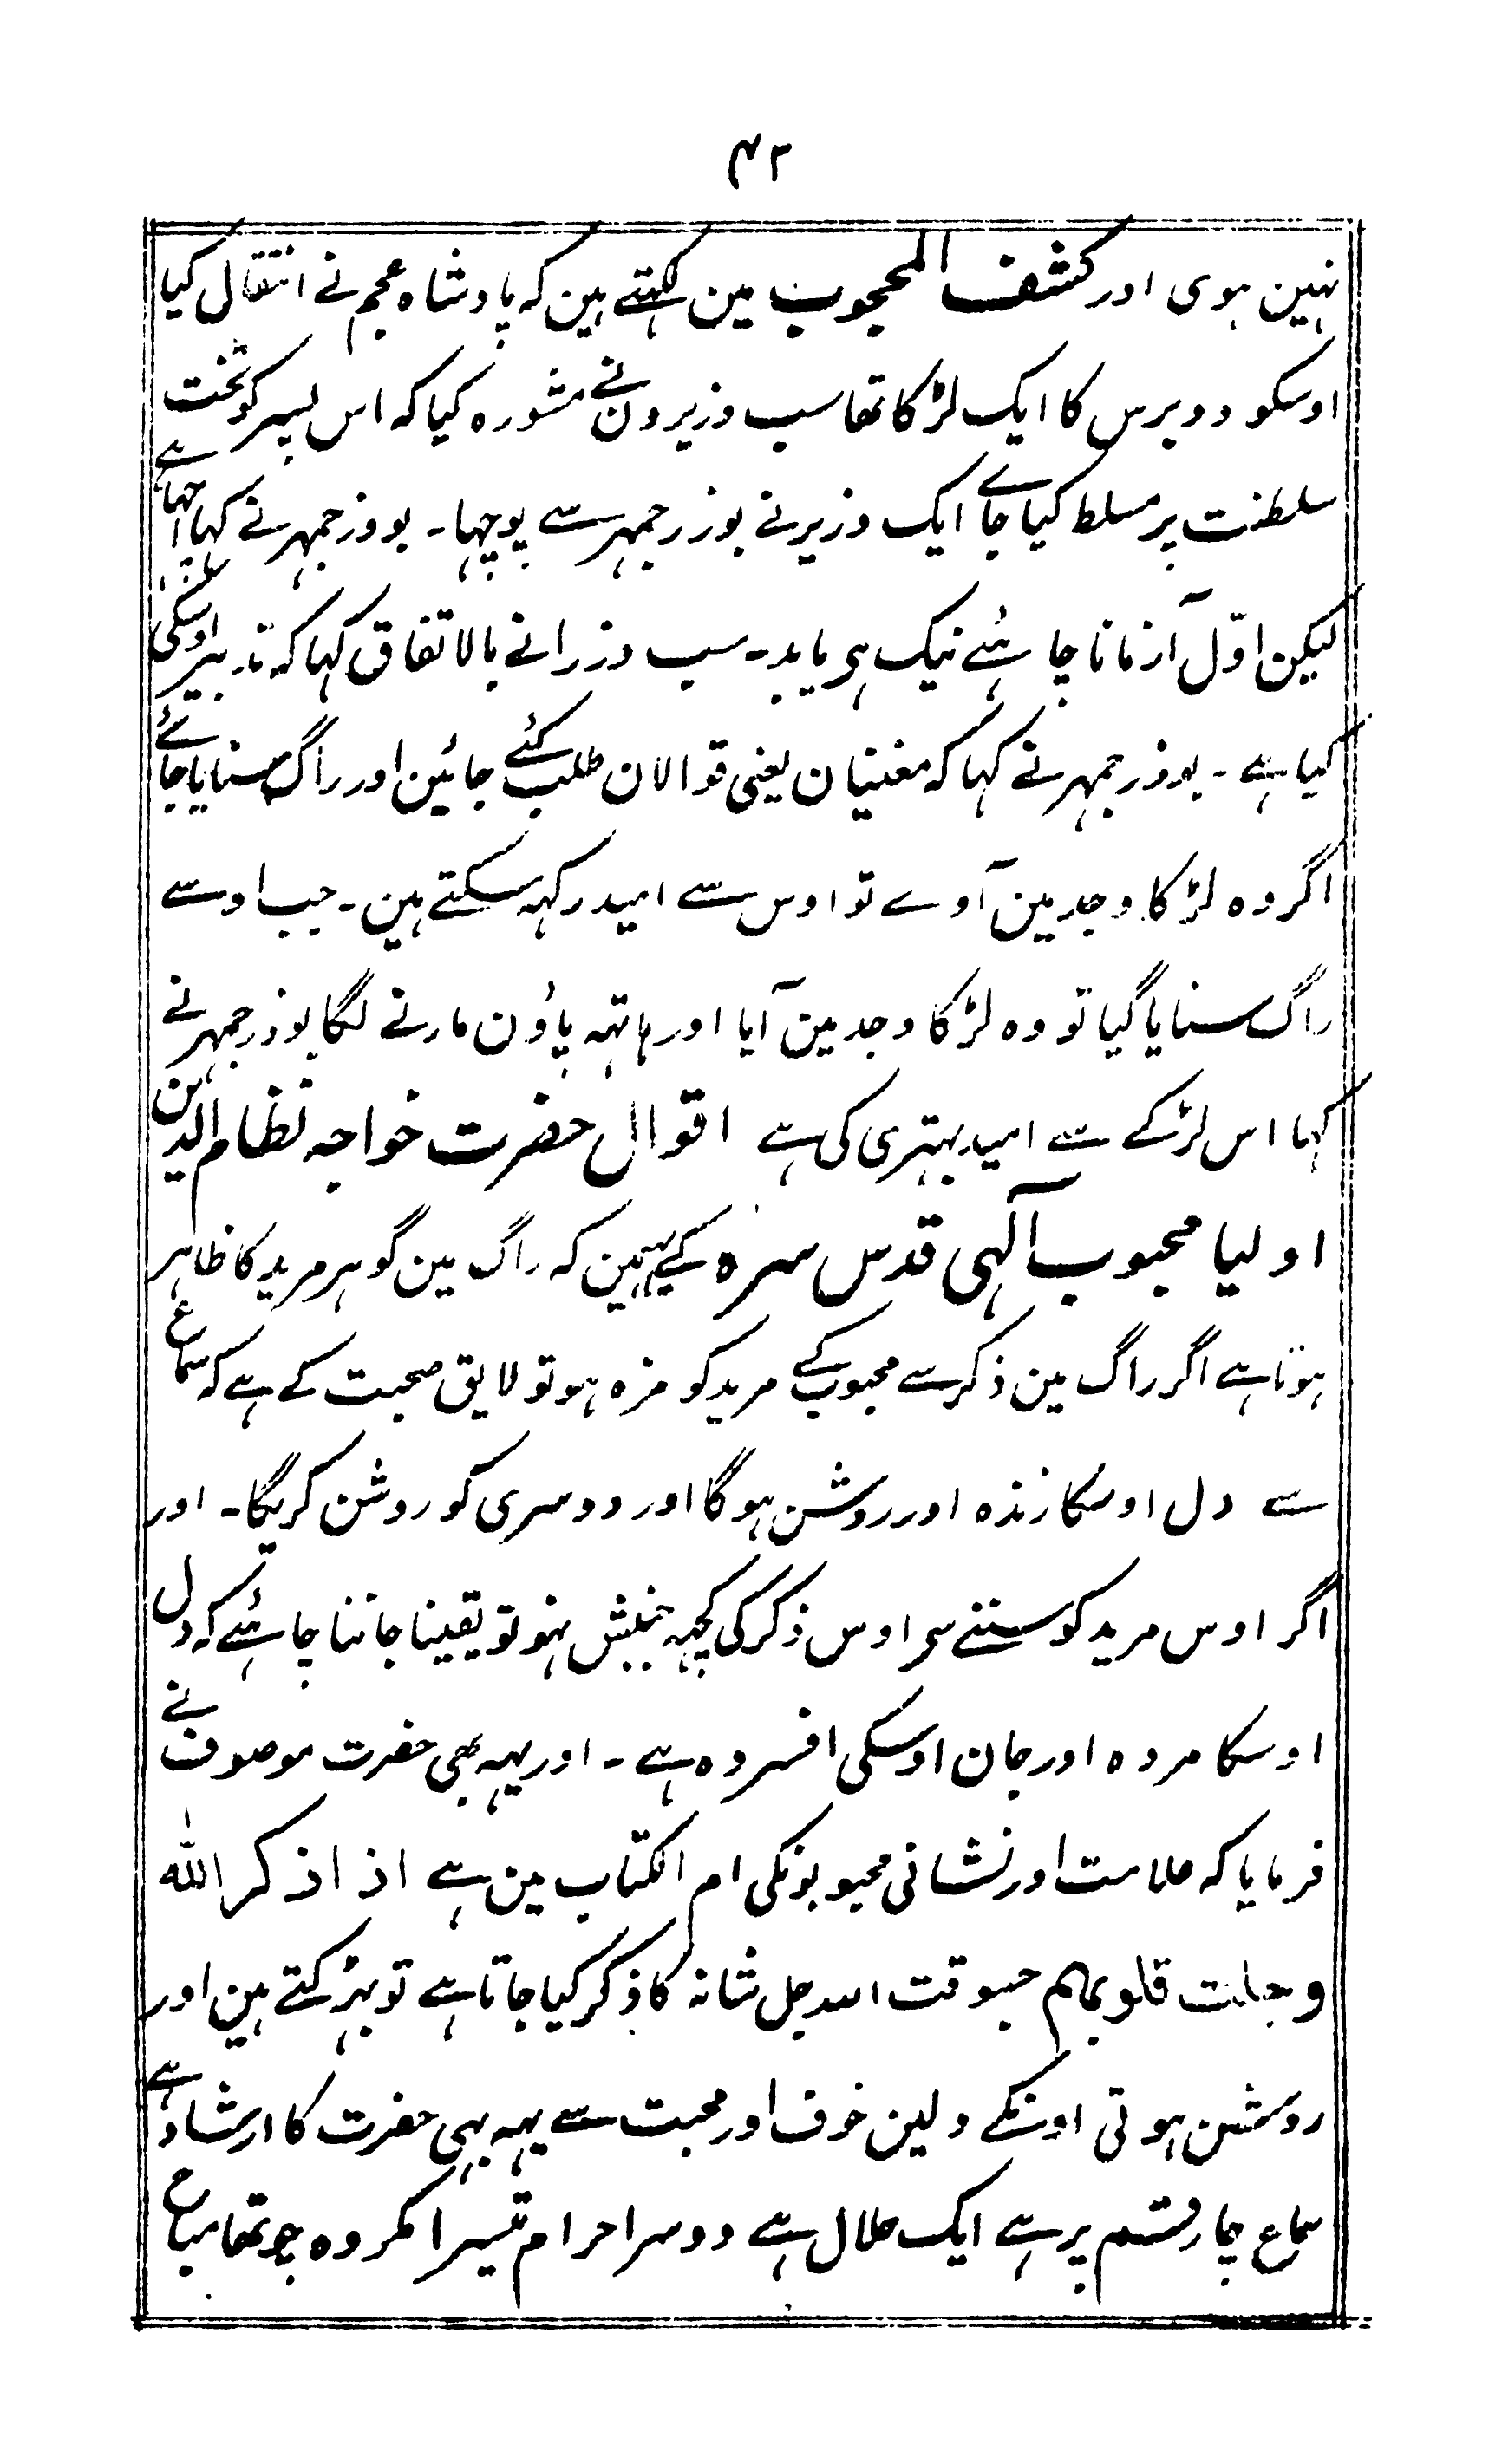 ۴۲
نہین ہوی اور کشف المحجوب مین لکہتے ہین کہ پادشاہ عجم نے انتقال کیا
اوسکو دو برس کا ایک لڑکا تھا سب وزیرون نے مشورہ کیا کہ اس پسر کو تخت
سلطنت پر مسلط کیا جاے ایک وزیر نے بوزرجمہر سے پوچہا۔ بوزرجمہر نے کہا اچہا ہے
لیکن اوّل آزمانا چاہئے نیک ہی یا بد۔ سب وزرانے بالاتفاق کہا کہ تدبیر اوسکی
کیا ہے۔ بوزرجمہر نے کہا کہ مغنیان یعنی قوالان طلب کئے جائین اور راگ سنایا جائے
اگر وہ لڑکا وجد مین آوے تو اوس سے امید رکہہ سکتے ہین۔ جب اوسے
راگ سنایا گیا تو وہ لڑکا وجد مین آیا اور ہاتہہ پاؤن مارنے لگا بوزرجمہر نے
کہا اس لڑکے سے امید بہتری کی ہے اقوال حضرت خواجہ نظام الدین
اولیا محبوب آلہی قدس سرہ کے یہہ ہین کہ راگ مین گوہر مرید کا ظاہر
ہوتا ہے اگر راگ مین ذکر سے محبوب کے مرید کو مزہ ہو تو لایق صحبت کے ہے کہ سماع
سے دل اوسکا زندہ اور روشن ہوگا اور دوسری کو روشن کریگا۔ اور
اگر اوس مرید کو سننے سی اوس ذکر کی کچہہ جنبش نہو تو یقینا جاننا چاہئے کہ دل
اوسکا مردہ اور جان اوسکی افسردہ ہے۔ اور یہہ بھی حضرت موصوف نے
فرمایا کہ علامت اور نشانی محبوبونکی ام الکتاب مین ہے اذا ذکر اللہ
وجلت قلوبہم جسوقت اللہ جل شانہ کا ذکر کیا جاتا ہے تو بہڑکتے ہین اور
روشن ہوتی اونکے دلین خوف اور محبت سے یہہ بہی حضرت کا ارشاد ہے
سماع چار قسم پر ہے ایک حلال ہے دوسرا حرام تیسرا مکروہ چوتھا مباح